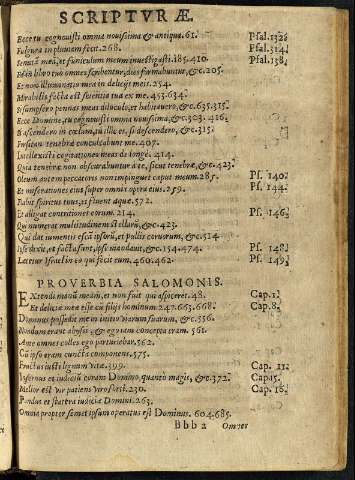 SCRIPTVRÆ.
Ecce tu cognouisti omnia nouissima & antiqua. 61. Psal. 138.
Fulgura in pluuiam fecit. 268. Psal. 134.
Semitã meã, et funiculum meum inuestigasti. 185. 410. Psal. 138.
Et in libro tuo omnes scribentur, dies formabuntur, &c. 205.
Et nox illuminatio mea in delicijs meis. 254.
Mirabilis facta est scientia tua ex me. 453. 634.
Si sumpsero pennas meas diluculo, et habitauero, &c. 635. 315.
Ecce Domine, tu cognouisti omnia nouissima, &c. 303. 416.
Si ascendero in cœlum, tu illic es, si descendero, &c. 315.
Forsitan tenebræ conculcabunt me. 407.
Intellexisti cogitationes meas de longè. 414.
Quia tenebræ non obscurabuntur à te, sicut tenebræ, &c. 423.
Oleum autem peccatoris non impinguet caput meum. 285. Ps. 140.
Et miserationes eius super omnia opera eius. 259. Ps. 144.
Flabit spiritus tuus, et fluent aquæ. 572.
Et alligat contritiones eorum. 214. Ps. 146.
Qui numerat multitudinem stellarũ, &c. 423.
Qui dat iumentis escã ipsorũ, et pullis coruorum, &c. 514
Ipse dixit, et facta sunt, ipse mandauit, &c. 154. 474. Ps. 148.
Lætetur Israel in eo qui fecit eum. 460. 462. Ps. 149.
PROVERBIA SALOMONIS.
Extendi manũ meam, et non fuit qui aspiceret. 48. Cap. 1.
Et deliciæ meæ esse cũ filijs hominum. 247. 663. 668. Cap. 8.
Dominus possedit me in initio viarum suarum, &c. 556.
Nondum erant abyssi & ego iam concepta eram. 561.
Ante omnes colles ego parturiebar. 562.
Cũ ipso eram cuncta componens. 575.
Fructus iusti lignum vitæ. 399. Cap. 11.
Infernus et iudiciũ coram Domino, quantò magis, &c. 372. Cap. 15.
Melior est vir patiens viro forti. 230. Cap. 16.
Pondus et statera iudicia Domini. 263.
Omnia propter semet ipsum operatus est Dominus. 604. 685.
Bbb 2 Omnes